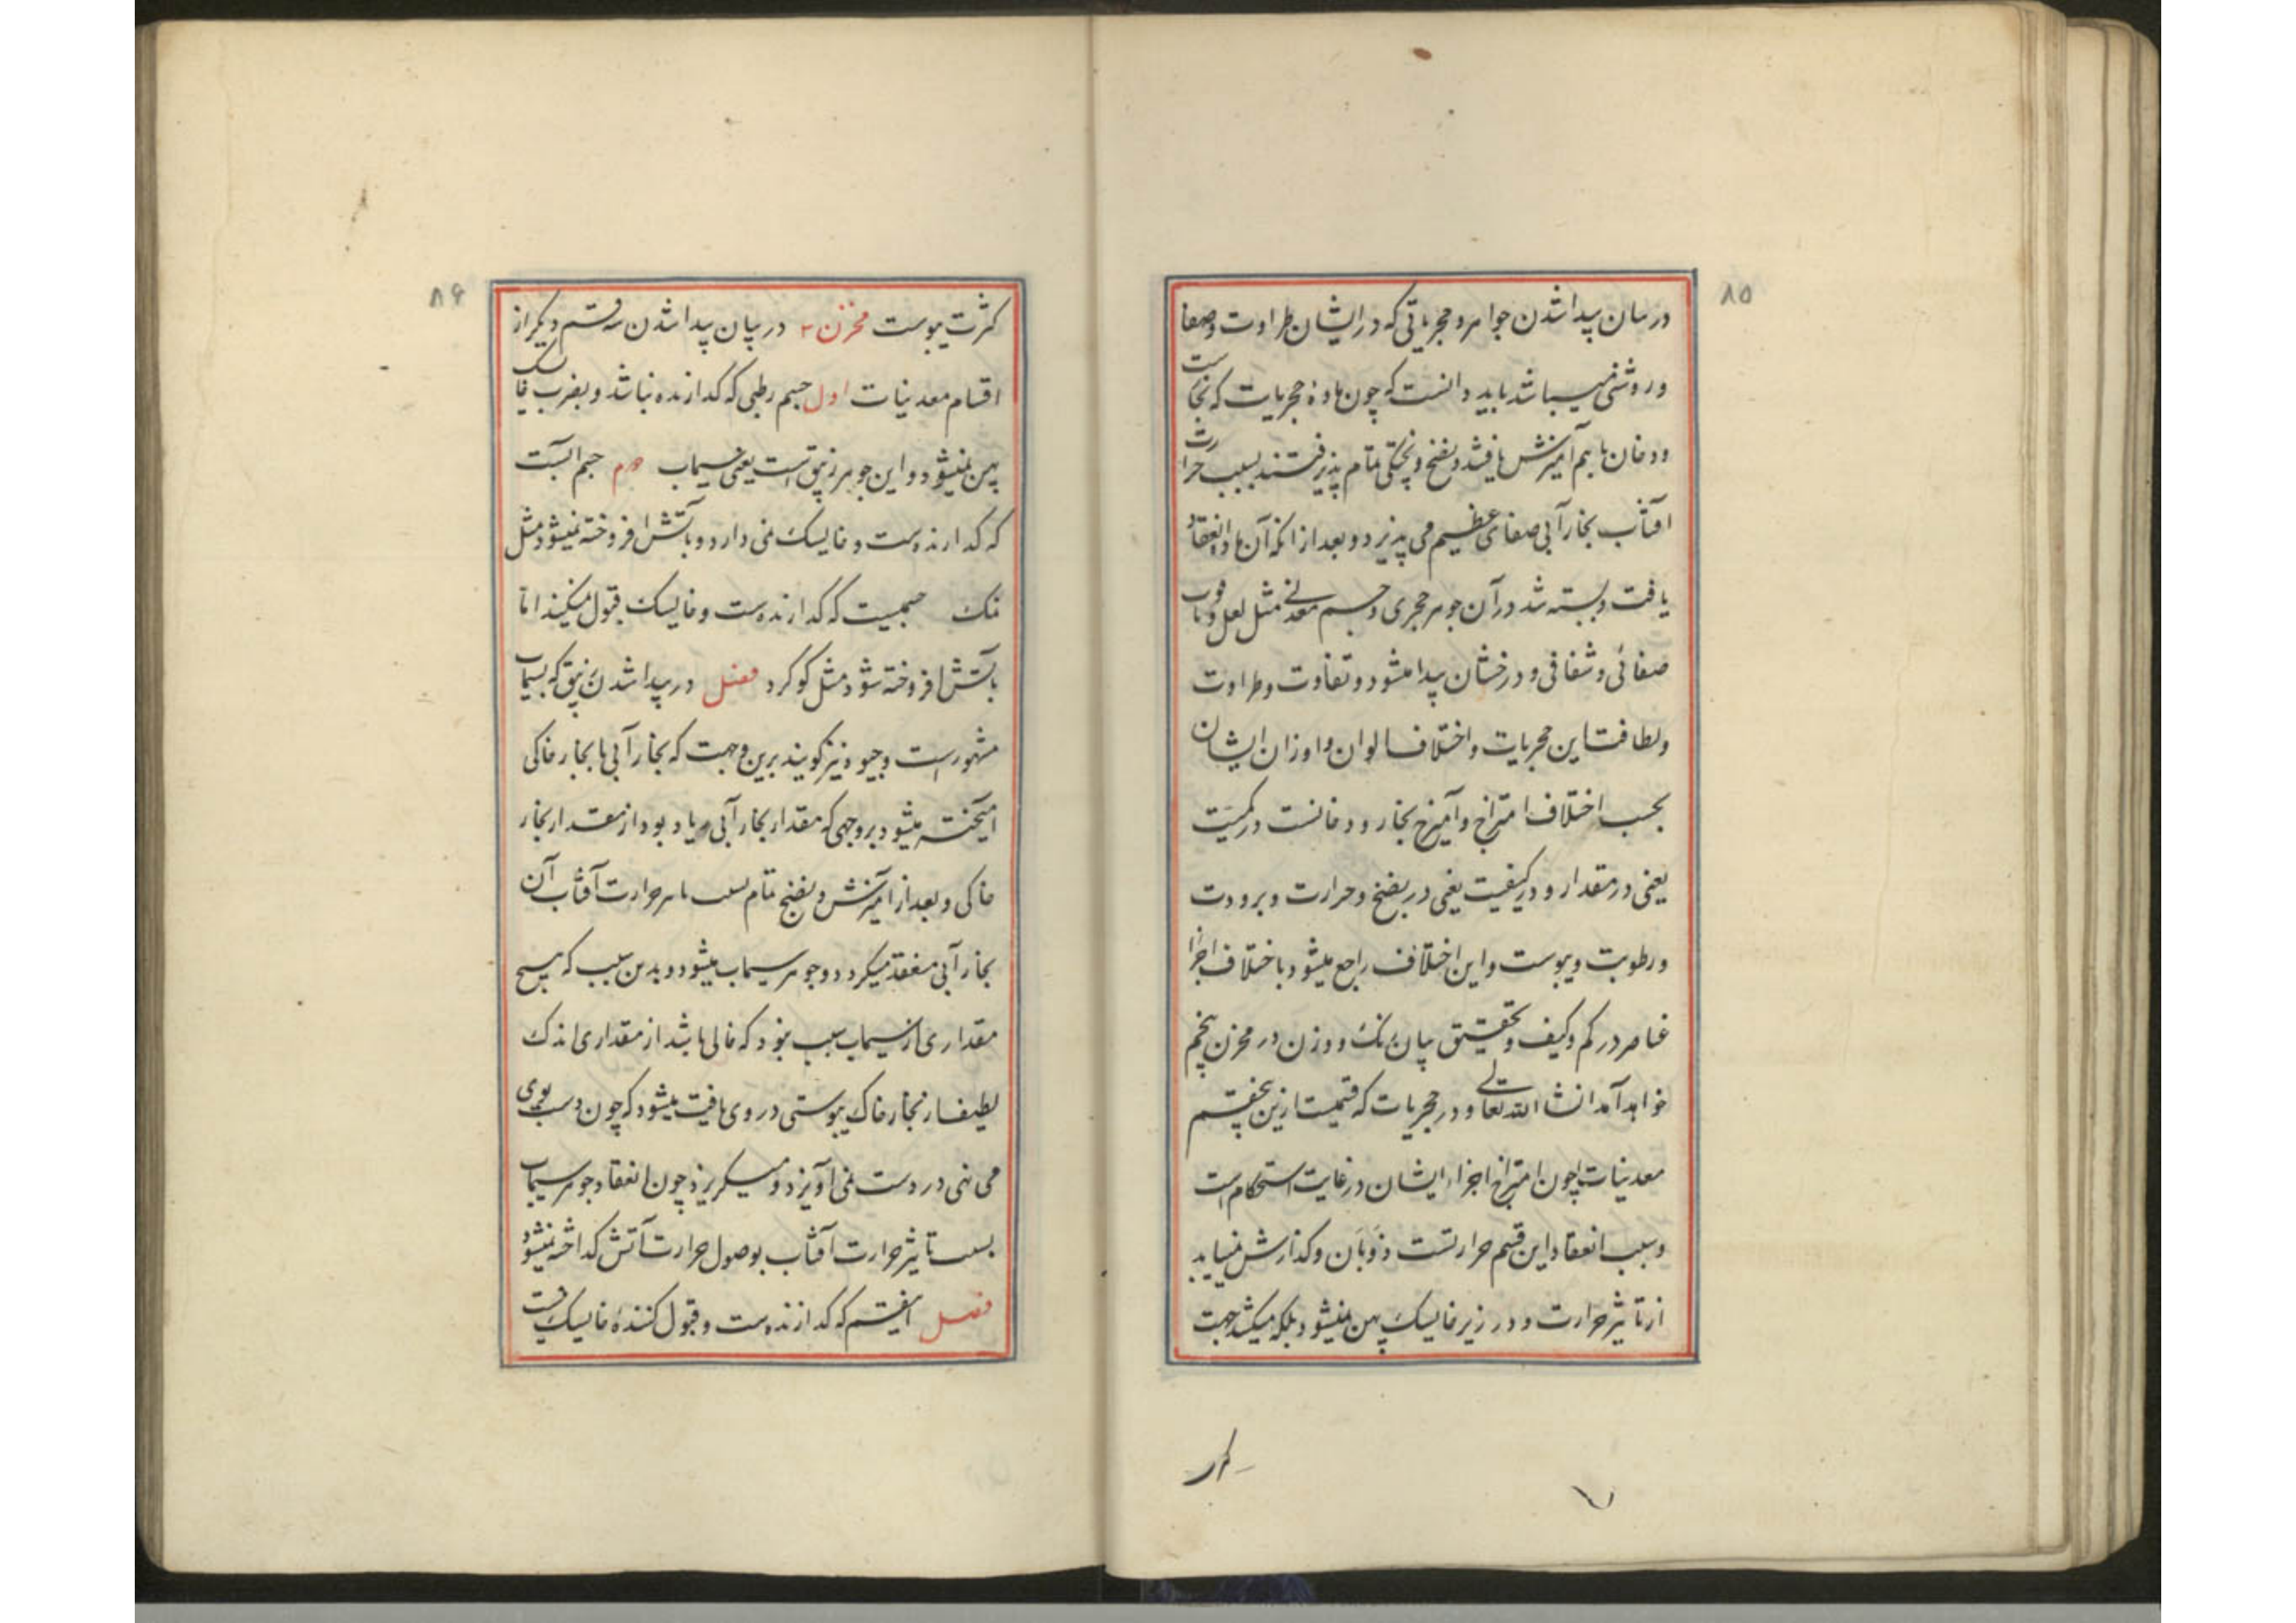 ۸۵
در بیان پیدا شدن جواهر و حجریاتی که در ایشان طراوت و صفا
و روشنی میباشد باید دانست که چون مادهٔ حجریات که بخارست
و دخان با هم آمیزش یافتند و نضج و پختگی تمام پذیرفتند بسبب حرارت
آفتاب بخار آبی صفای عظیم می پذیرد و بعد از آنکه آن ماده انعقاد
یافت و بسته شد در آن جوهر حجری و جسم معدنی مثل لعل و یاقوت
صفائی و شفافی و درخشان پیدا میشود و تفاوت و طراوت
و لطافت این حجریات و اختلاف الوان و اوزان ایشان
بحسب اختلاف امتزاج و آمیزخ بخار و دخانست در کمیت
یعنی در مقدار و در کیفیت یعنی در نضج و حرارت و برودت
و رطوبت و یبوست و این اختلاف راجع میشود باختلاف اجزا
عناصر در کم و کیف و تحقیق بیان رنک و وزن در مخزن پنجم
خواهد آمد انشا الله تعالی و در حجریات که قسمیست ازین پنجقسم
معدنیات چون امتزاج اجزاء ایشان در غایت استحکام است
و سبب انعقاد این قسم حرارتست ذَوَبَان و کدازش نمییابد
از تاثیر حرارت و در زیر خایسک پهن نمیشود بلکه میشکند جهت
۸۶
کثرت یبوست مخزن ۲ در بیان پیدا شدن سه قسم دیکر از
اقسام معدنیات اول جسم رطبی که کدازنده نباشد و بضرب خایسک
پهن نمیشود و این جوهر زیبق است یعنی سیماب دوم جسم است
که کدازنده است و خایسک نمی دارد و بآتش افروخته نمیشود مثل
نمک جسمیست که کدازنده است و خایسک قبول میکند اما
بآتش افروخته شود مثل کوکرد فصل در پیدا شدن زیبق که بسیماب
مشهور است و جیوه نیز کویند برین وجهت که بخار آبی با بخار خاکی
آمیخته میشود بروجهی که مقدار بخار آبی زیاد بود از مقدار بخار
خاکی و بعد از آمیزش و نضج تمام بسبب تاثیر حرارت آفتاب آن
بخار آبی منعقد میکردد و جوهر سیماب میشود و بدین سبب که هیچ
مقداری از سیماب نبود که خالی باشد از مقداری اندک
لطیف از بخار خاک یبوستی در وی یافت میشود که چون دست بوی
می نهی در دست نمی آویزد و میکریزد چون انعقاد جوهر سیماب
بسبب تاثیر حرارت آفتاب بوصول حرارت آتش کداخته نمیشود
فصل آنقسم که کدازنده است و قبول کنندهٔ خایسک